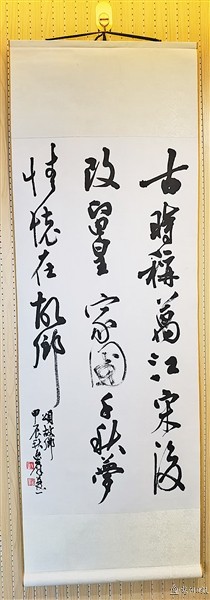 古時稱萬江宋後
改留皇家園千秋夢
情懷在故鄉
頌故鄉
甲辰秋